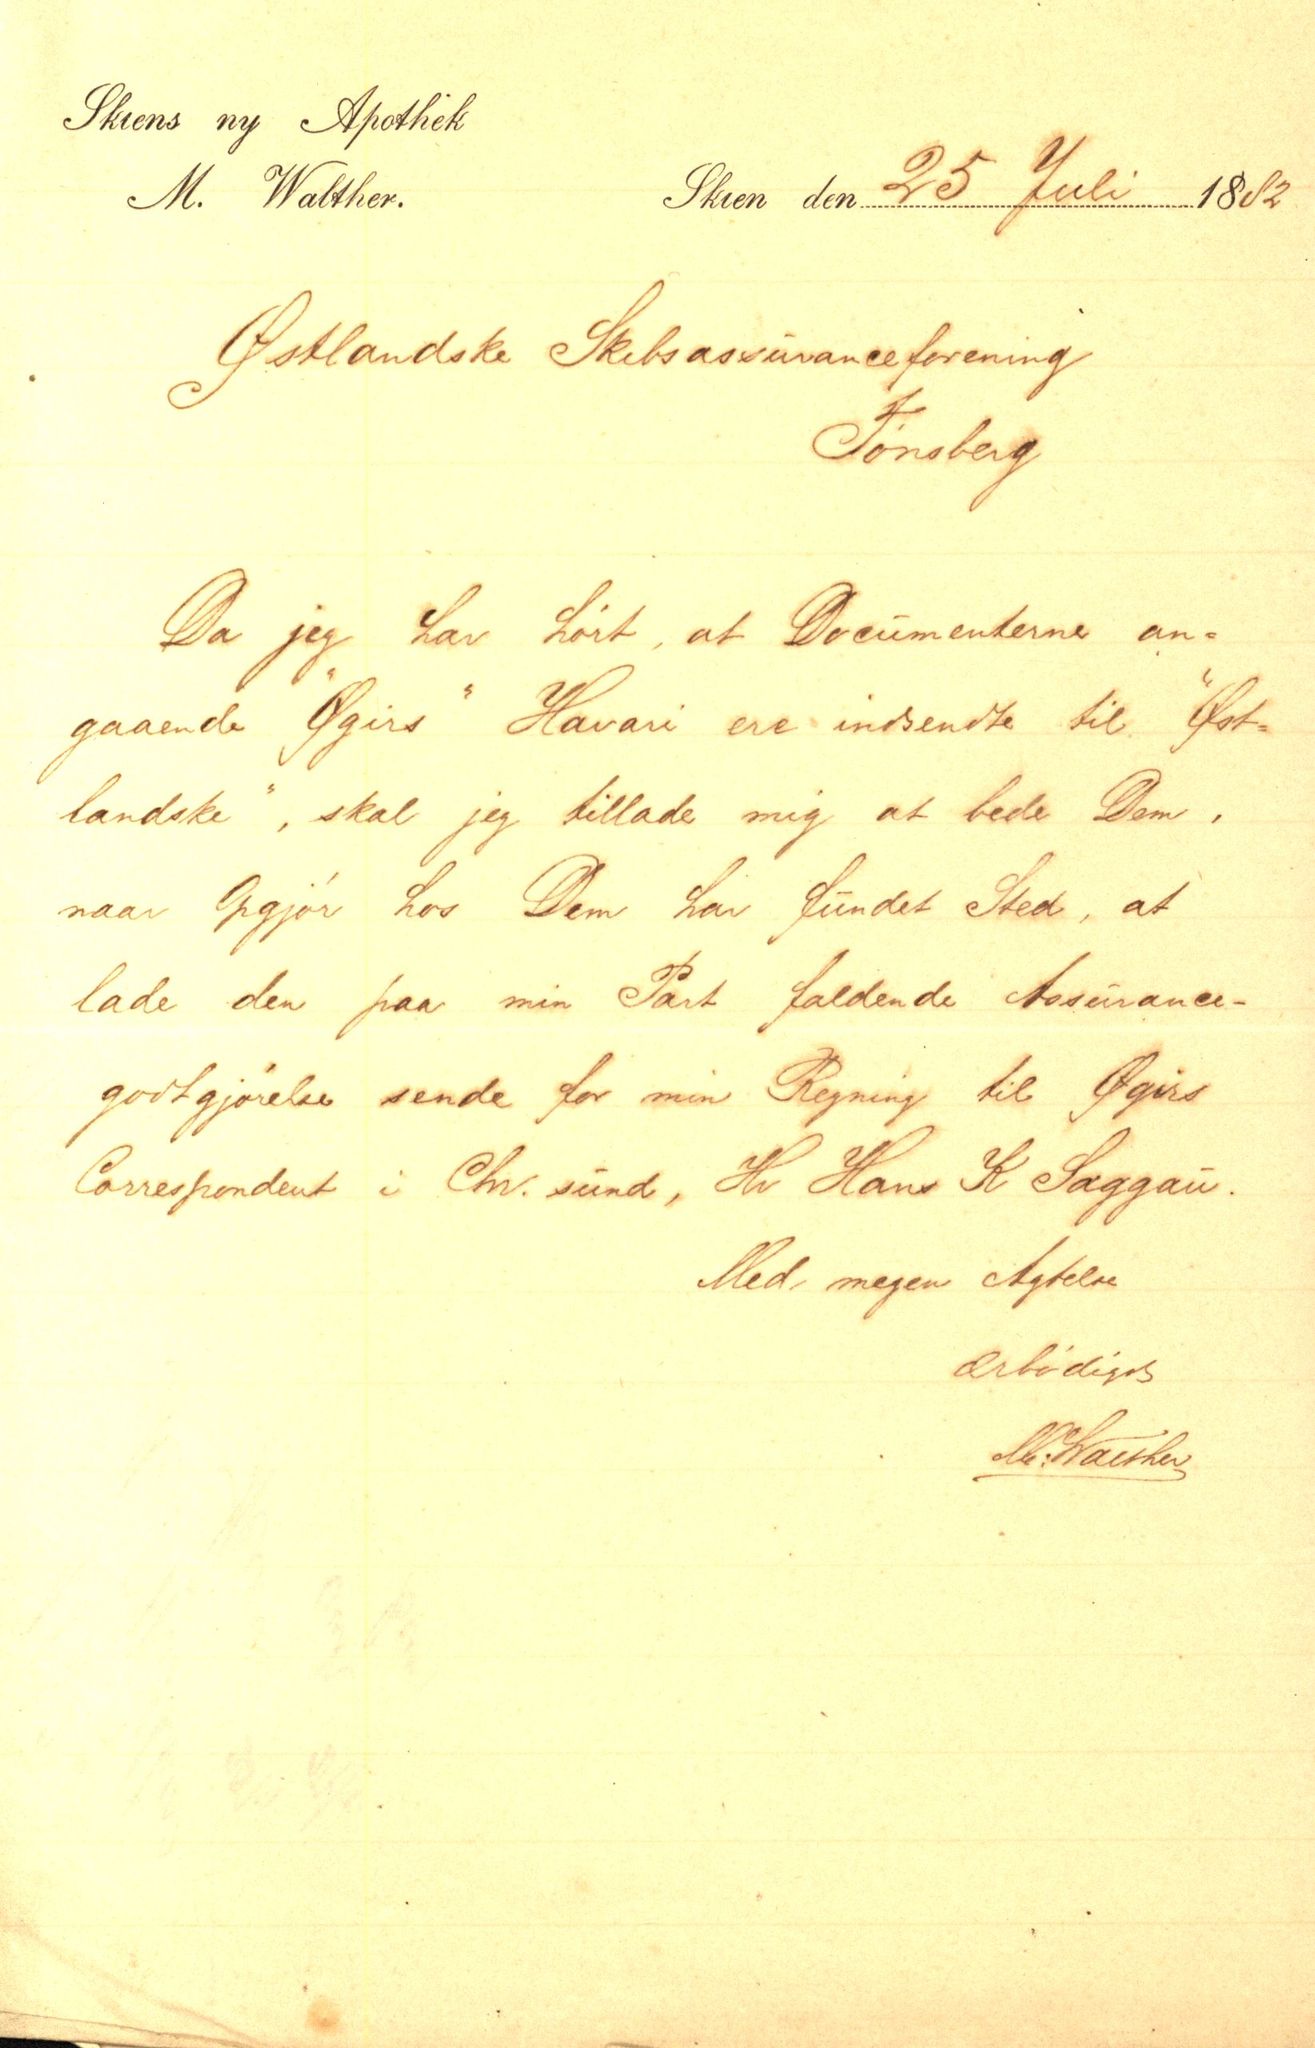 Skiens ny Apothek
M. Walther.
Skien den 25 Juli 1882
Østlandske Skibsassuranceforening
Tønsberg
Da jeg har hørt, at Documenterne an=
gaaende "Øgirs" Havari ere indsendte til "Øst=
landske", skal jeg tillade mig at bede Dem,
naar Opgjør hos Dem har fundet Sted, at
lade den paa min Part faldende Assurance-
godtgjørelse sende for min Regning til Øgirs
Correspondent i Chr. sund, Hr Hans K Saggau.
Med megen Agtelse
ærbødigst
M. Walther